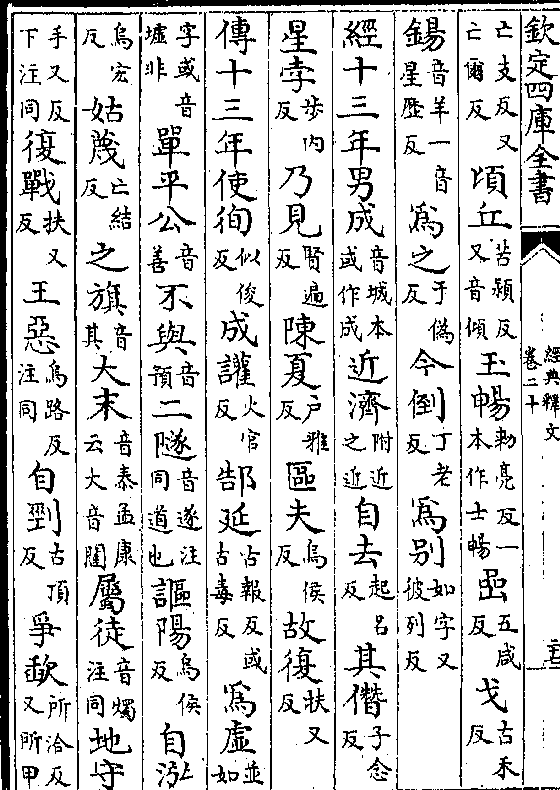 欽定四庫全書
經典釋文
卷二十
亡支反又亡爾反頃丘苦潁反又音傾玉暢勑亮反一本作士暢嵒五咸反戈古禾反
鍚音羊一音星歷反為之于偽反今倒丁老反為別如字又彼列反
經十三年男成音城本或作成近濟附近之近自去起呂反其僭子念反
星孛步内反乃見賢遍反陳夏户雅反區夫烏侯反故復扶又反
傳十三年使徇似俊反成讙火官反郜延古報反或古毒反為虛並如
字或音墟非單平公音善不與音預二隧音遂注同道也謳陽烏侯反自泓
烏宏反姑蔑亡結反之旗音其大末音泰孟康云大音闥屬徒音燭注同地守
手又反下注同復戰扶又反王惡烏路反注同自剄古頂反爭歃所洽反又所甲